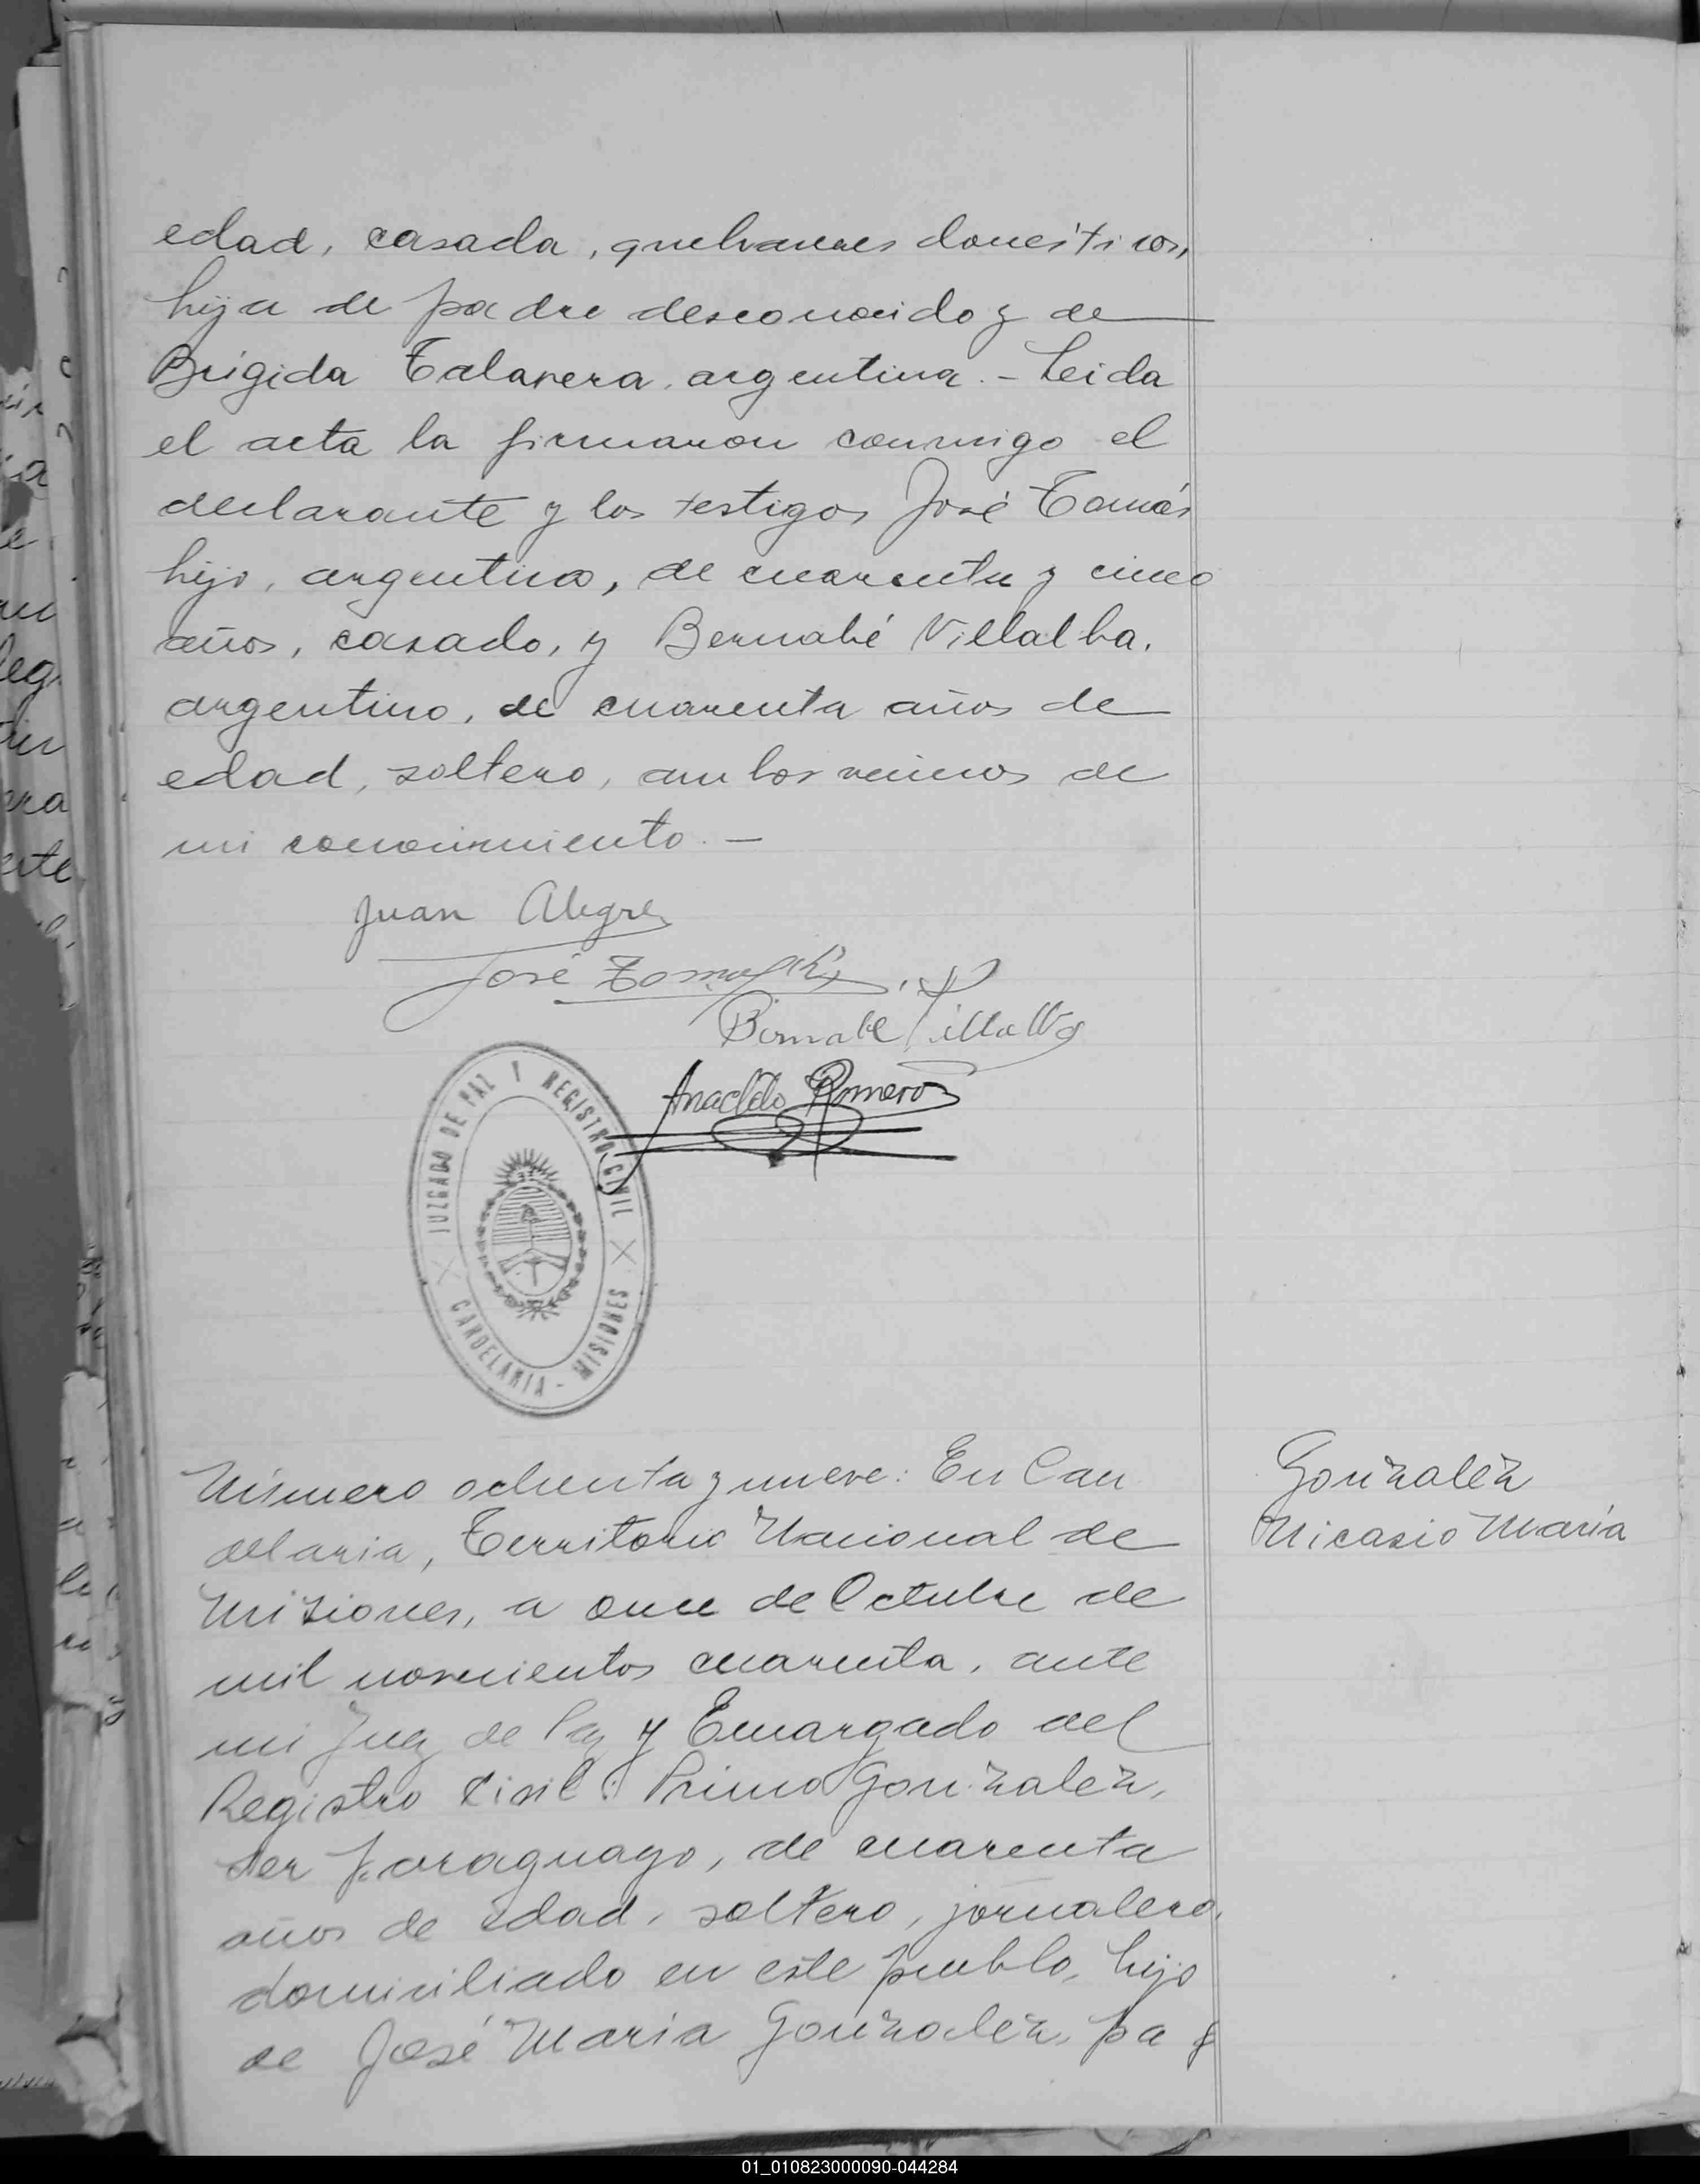 edad, casada, quehaceres domésticos,
hija de padre desconocido y de
Brígida Talavera, argentina.- Leida
el acta la firmaron conmigo el
declarante y los testigos José Tomás
hijo, argentino, de cuarenta y cinco
años, casado, y Bernabé Villalba,
argentino, de cuarenta años de
edad, soltero, ambos vecinos de
mi conocimiento.-
Juan Alegre
José Tomás
Bernabe Villalba
Anacleto Romero
JUZGADO DE PAZ Y REGISTRO CIVIL
CANDELARIA - MISIONES
Número ochenta y nueve: En Can
delaria, Territorio Nacional de
Misiones, a once de Octubre de
mil novecientos cuarenta, ante
mi Juez de Paz y Encargado del
Registro Civil: Primo González,
ser paraguayo, de cuarenta
años de edad, soltero, jornalero,
domiciliado en este pueblo, hijo
de José María González, pa
González
Nicasio María
01_010823000090-044284